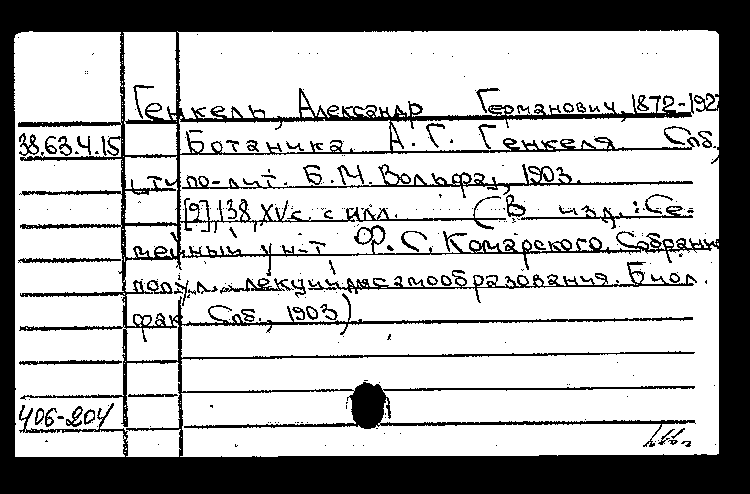 Генкель, Александр Германович, 1872-1927
38.63.4.15 Ботаника. А. Г. Генкеля. Спб.,
типо-лит. Б. М. Вольфа, 1903.
[2], 138, XV с. с илл. (В изд.: Се-
мейный ун-т Ф. С. Комарского. Собрание
попул. лекций для самообразования. Биол.
фак. Спб., 1903).
406-204